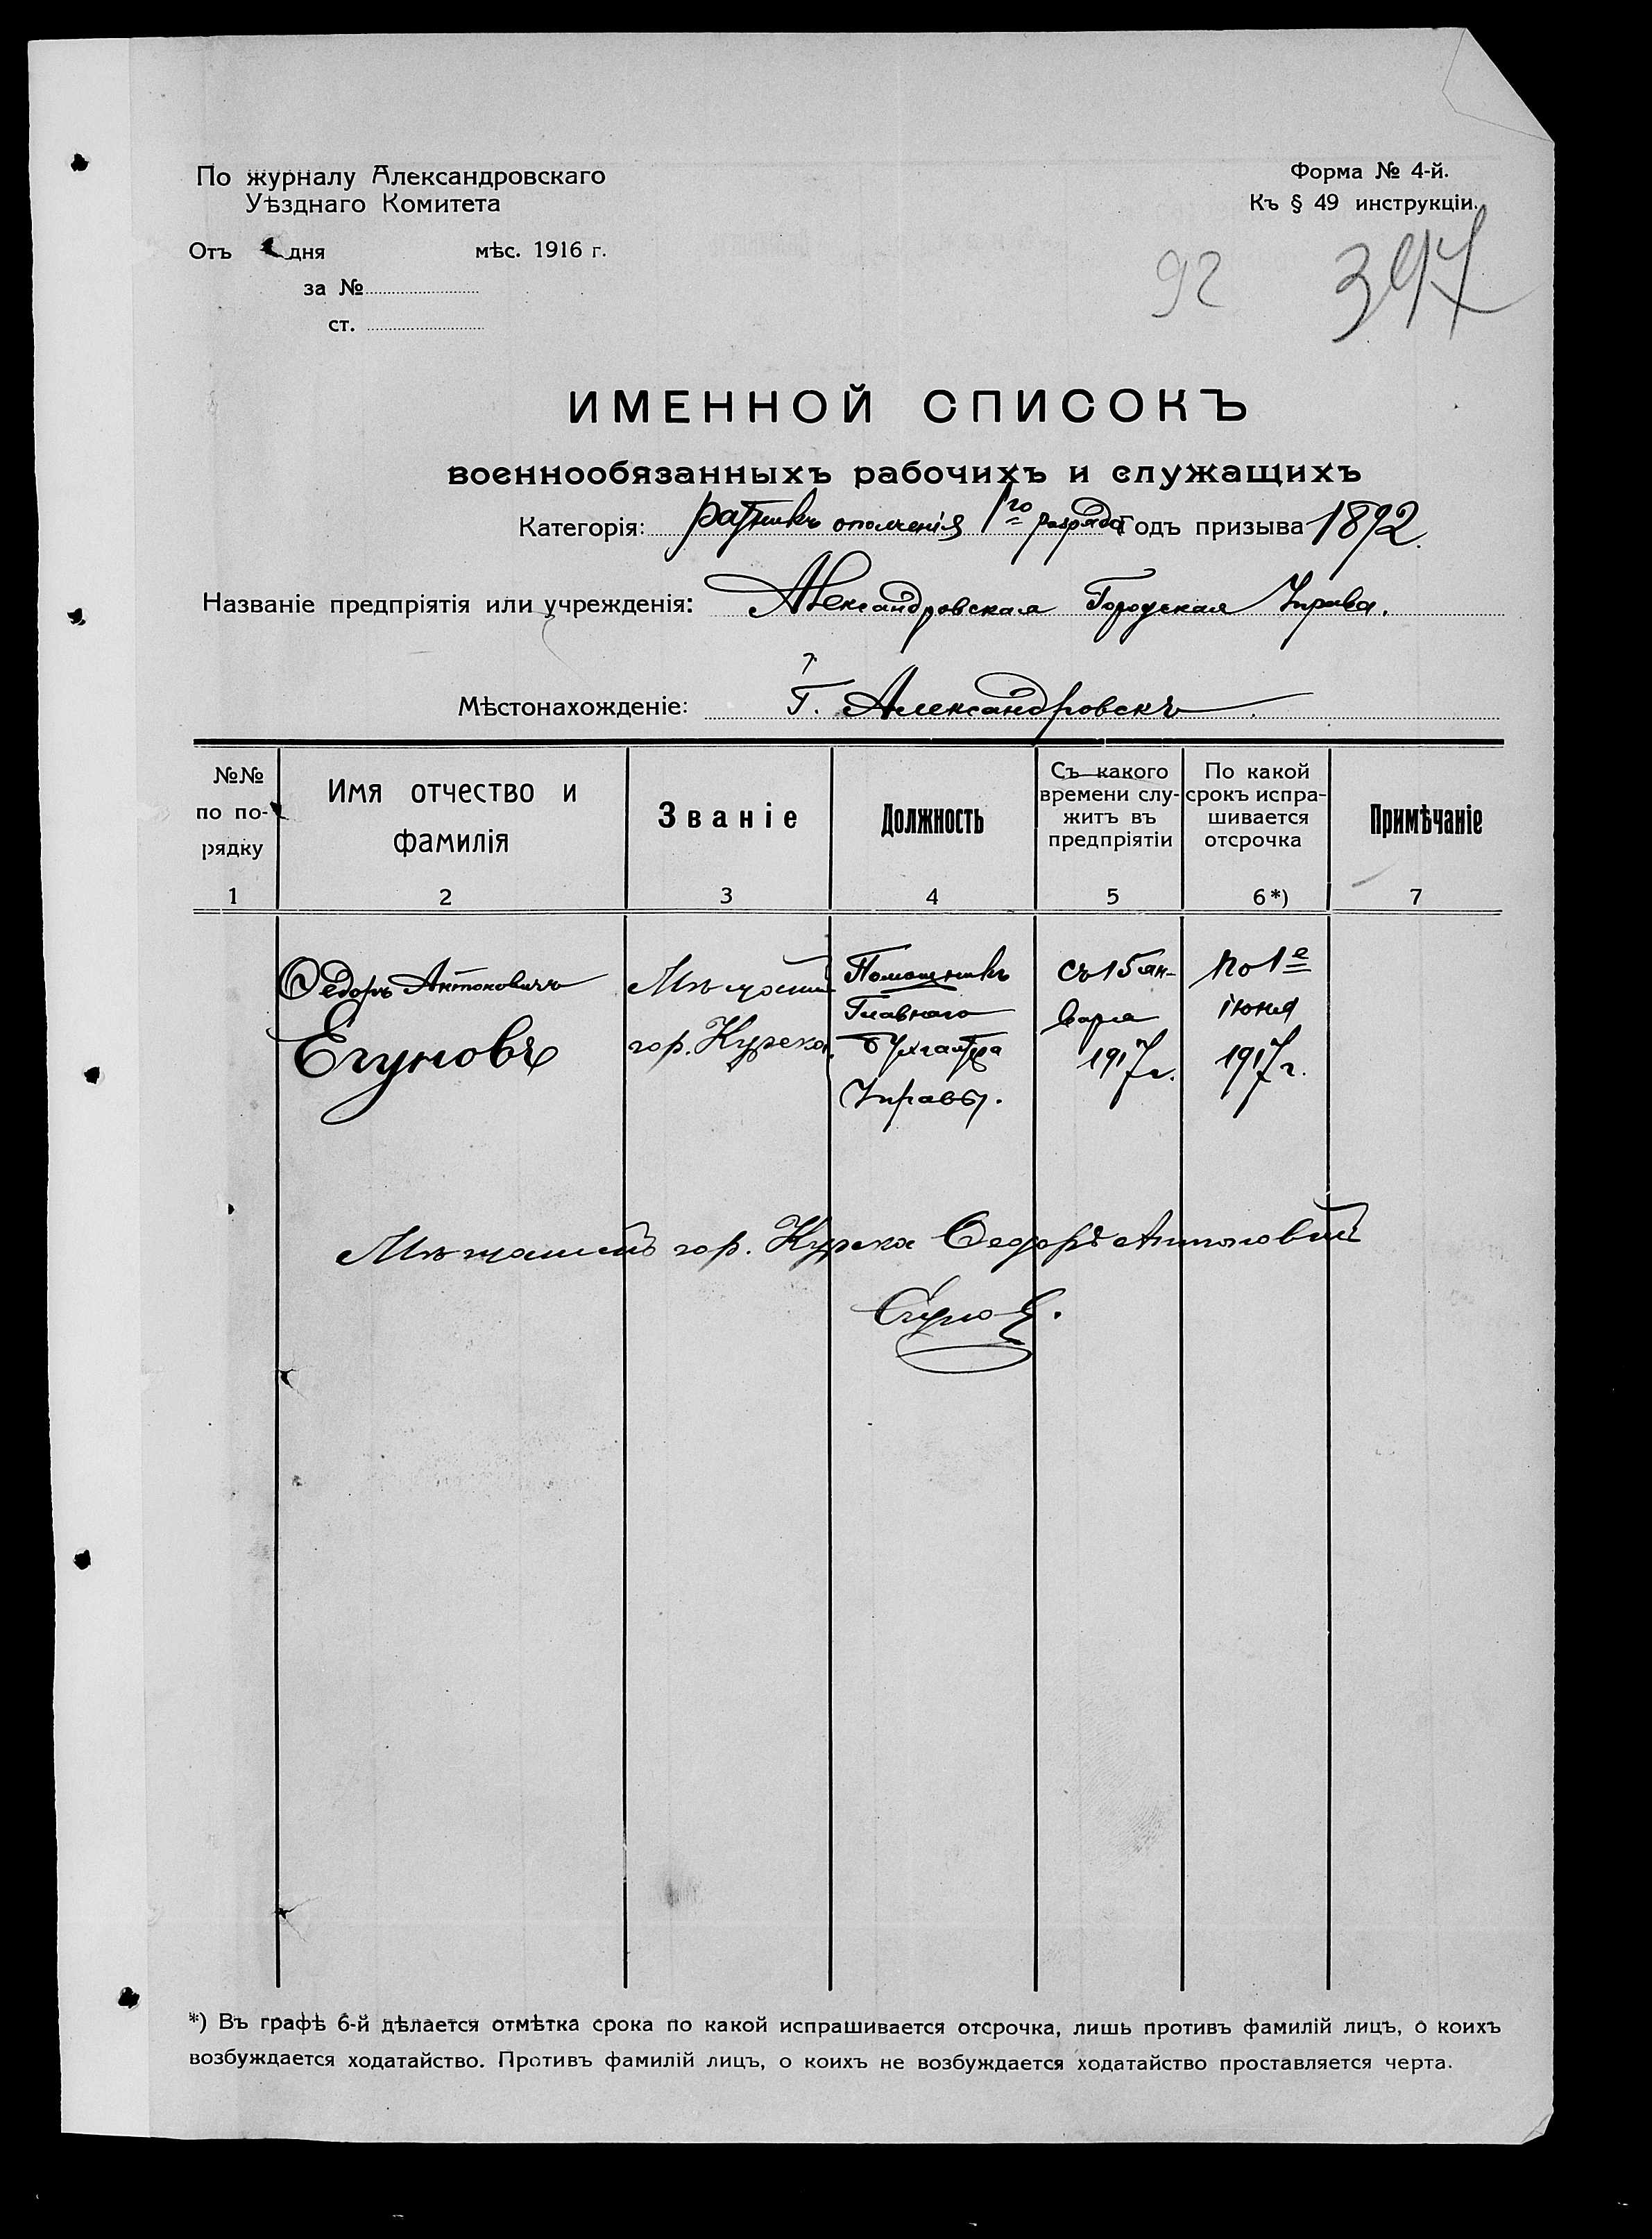 По журналу Александровскаго
Уѣзднаго Комитета
Отъ дня мѣс. 1916 г.
за №
ст.
Форма № 4-й.
Къ § 49 инструкціи.
92 397
ИМЕННОЙ СПИСОКЪ
военнообязанныхъ рабочихъ и служащихъ
Категорія: ратникъ ополченія 1го разряда Годъ призыва 1892.
Названіе предпріятія или учрежденія: Александровская Городская Управа.
Мѣстонахожденіе: Г. Александровскъ
№№ по по-рядку
Имя отчество и фамилія
Званіе
Должность
Съ какого времени слу-житъ въ предпріятіи
По какой срокъ испра-шивается отсрочка
Примѣчаніе
1 2 3 4 5 6*) 7
Ѳедоръ Антоновичъ
Егуновъ
Мѣщанинъ
гор. Курска.
Помощникъ
Главнаго
бухгалтера
Управы.
съ 15 ян-
варя
1917 г.
по 1е
іюня
1917 г.
Мѣщанинъ гор. Курска Ѳедоръ Антоновичъ
Егуновъ.
*) Въ графѣ 6-й дѣлается отмѣтка срока по какой испрашивается отсрочка, лишь противъ фамилій лицъ, о коихъ
возбуждается ходатайство. Противъ фамилій лицъ, о коихъ не возбуждается ходатайство проставляется черта.